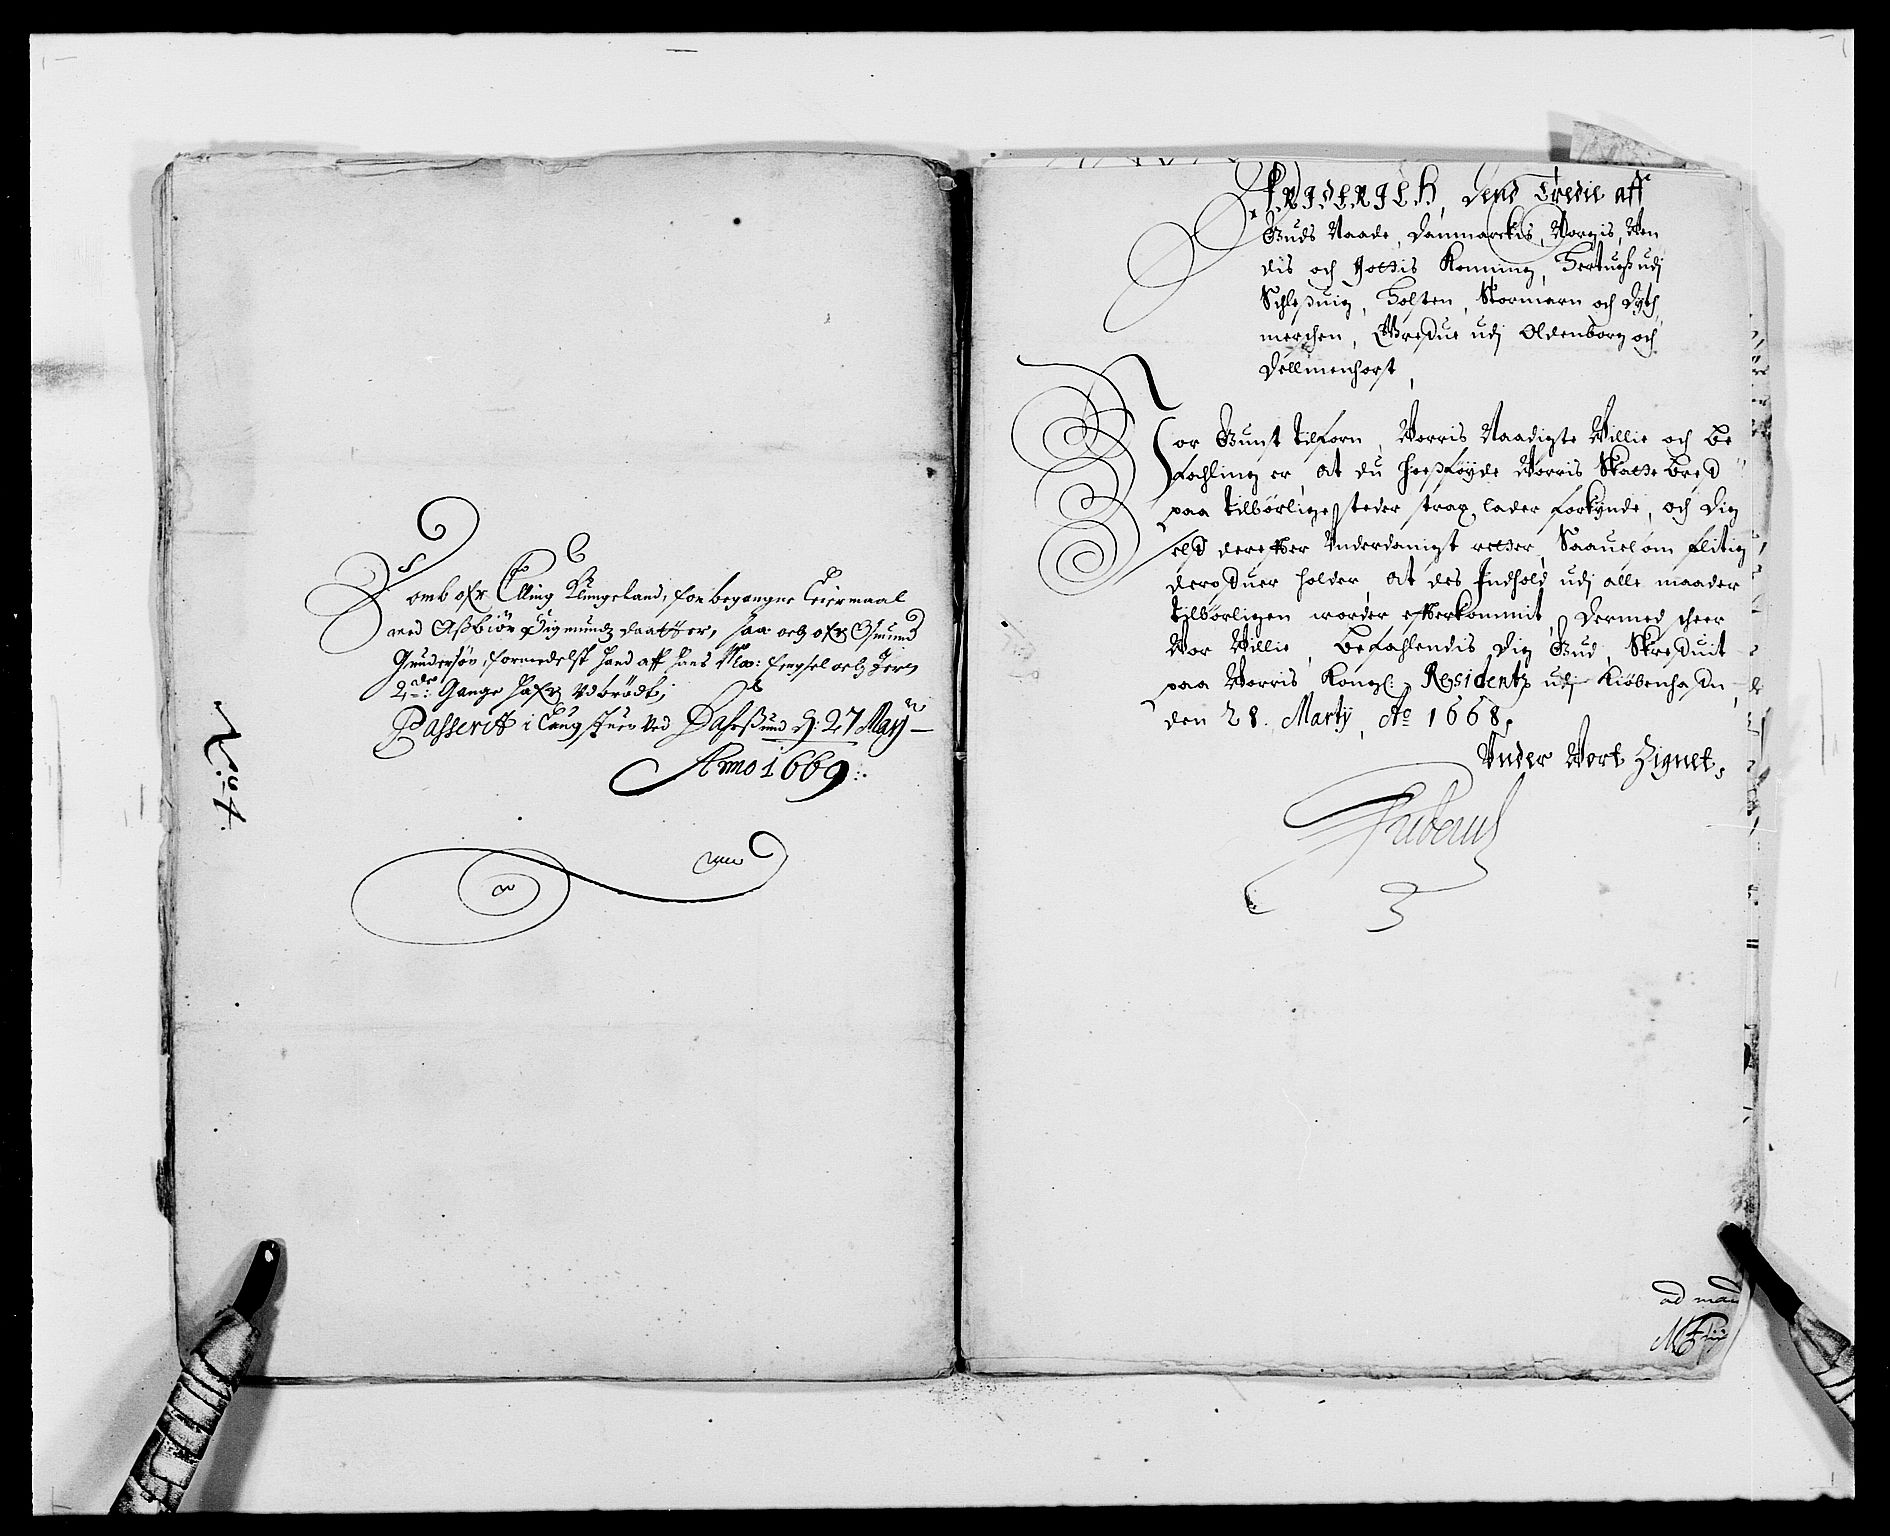 Domb ofr Elling Klungeland, for begangne Leiermaal
med Aßbiör Sigmundz daatter, saa och ofr Osmund
Gunderßøn, formedelst hand aff hans May: fengsel och Jern
2de: Gange hafr Udbrødt,
Passerit i Laugstuen ved Dahsßund d: 27 May
Anno 1669
No: 4.
FRIDERICH, dend Tredie aff
Guds Naade, Danmarckis, Norgis, Wen
dis och Gottis Konning, Hertug udj
Schleßuig, Holsten, Stormarn och Dyth
merschen, Grefue udj Oldenborg och
Dellmenhorst,
Vor Gunst tilforn, Worris Naadigste Willie och Be
fahling er, at du hosføyde Worris Skatte bref
paa tilbørlige steder strax lader forkynde, och dig
self derefter Underdanigst retter, Saauelsom flitig
derofuer holder, at des Indhold udj alle maader
tilbørligen worder efterkommit, Dermed scheer
Vor Willie, Befahlendis dig Gud, Skrefuit
paa Worris Kongl: Residentz udj Kiøbenhafn,
den 28. Martij, Ao 1668.
Under Vort Zignet,
ad man